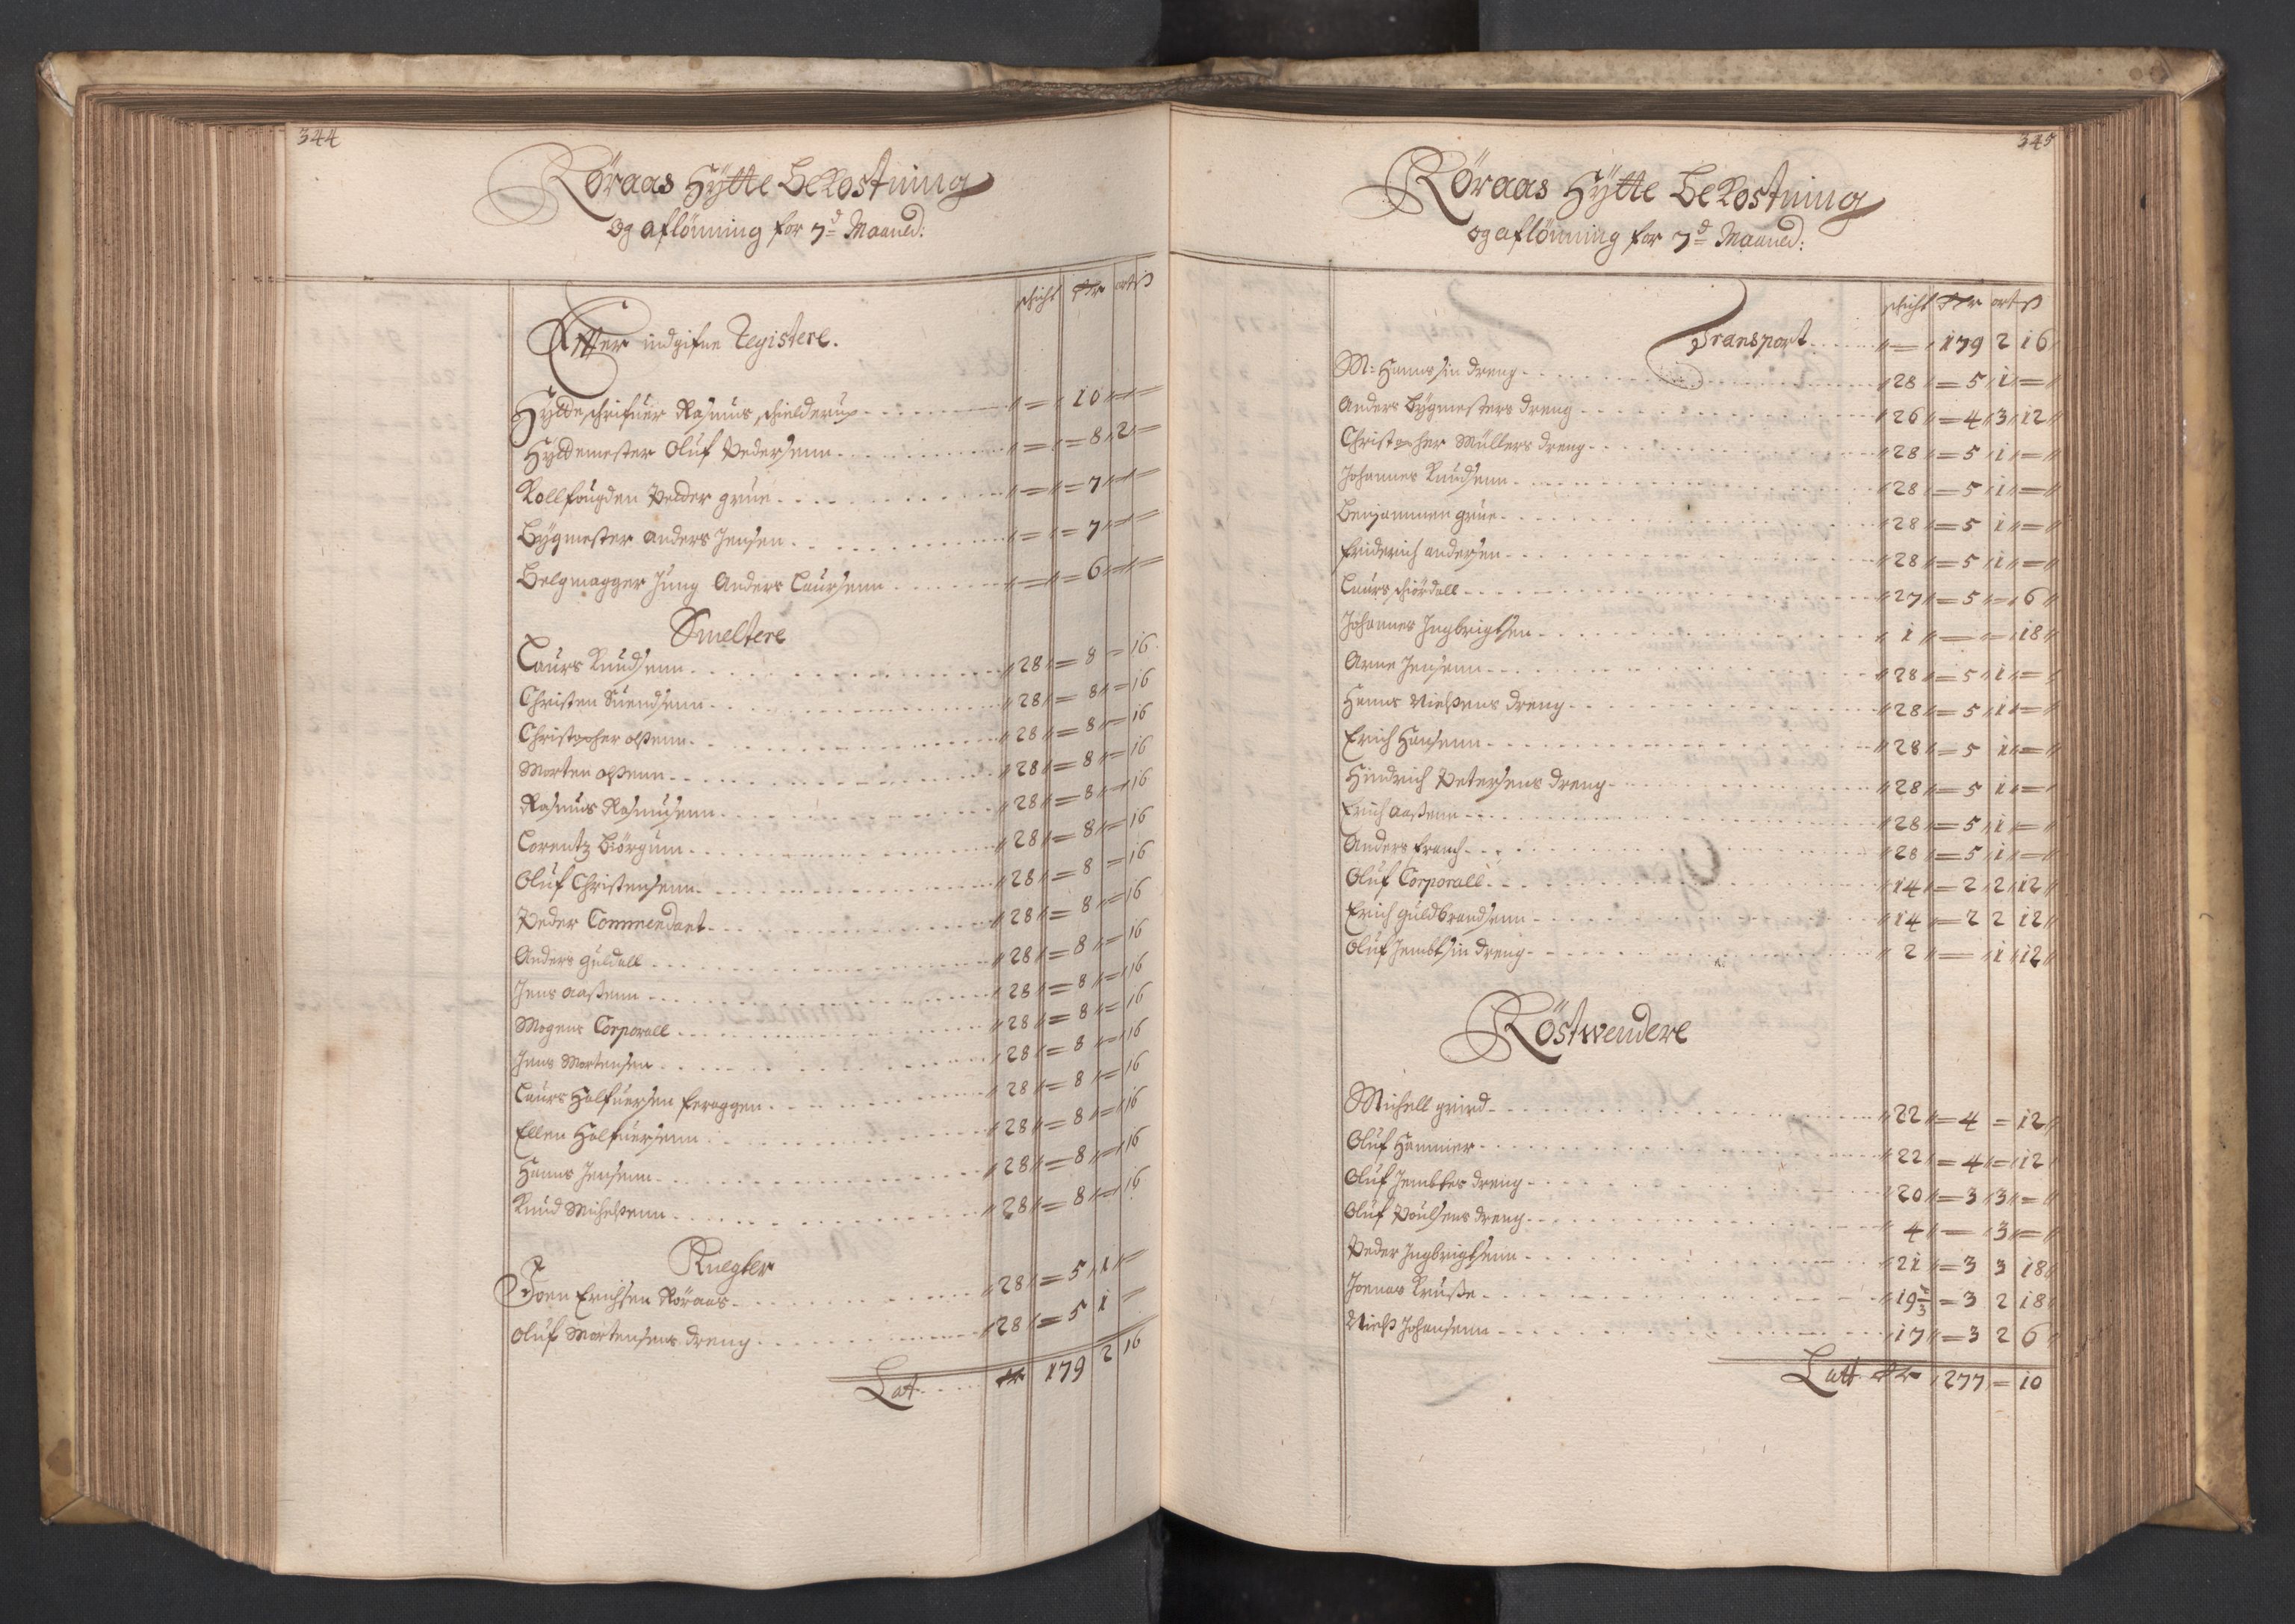 344
Røraas Hÿtte Bekostning
og aflønning for 7d Maaned:
schicht Rdr ort ß
Efter indgifne Registere.
Hÿtteschrifuer Rasmus schielderup - = 10 = =
Hÿttemester Oluf Pedersenn - = 8 2 =
Kollfougden Pedder grue - = 7 = =
Bÿgmester Anders Jensen - = 7 = =
Belgmagger Jung Anders Laursenn - = 6 = =
Smeltere
Laurs Knudsenn - 28 = 8 = 16
Christen Suendsenn - 28 = 8 = 16
Christopher olßenn - 28 = 8 = 16
Morten olßenn - 28 = 8 = 16
Rasmus Rasmusenn - 28 = 8 = 16
Lorentz Biörgum - 28 = 8 = 16
Oluf Christensenn - 28 = 8 = 16
Peder Commendant - 28 = 8 = 16
Anders guldall - 28 = 8 = 16
Jens aaßenn - 28 = 8 = 16
Mogens Corporall - 28 = 8 = 16
Jens Mortensen - 28 = 8 = 16
Laurs Halfuersen feraggen - 28 = 8 = 16
Ellen Halfuersenn - 28 = 8 = 16
Hanns Jensenn - 28 = 8 = 16
Knud Michelßenn - 28 = 8 = 16
Knegter
Joen Erichsen Röraas - 28 = 5 1 =
Oluf Mortensens dreng - 28 = 5 1 =
Lat - Rdr 179 2 16
345
Røraas Hÿtte Bekostning
og aflønning for 7d Maaned:
schicht Rdr ort ß
Transport - = 179 2 16
Mr: Hanns sin dreng - 28 = 5 1 =
Anders Bÿgmesters dreng - 26 = 4 3 12
Christopher Müllers dreng - 28 = 5 1 =
Johannes Knudsenn - 28 = 5 1 =
Benjammen grue - 28 = 5 1 =
friderich andersen - 28 = 5 1 =
Laurs schiördall - 27 = 5 = 6
Johannes Ingbrigtsen - 1 = = 18
Arne Jensenn - 28 = 5 1 =
Hanns Nielßens dreng - 28 = 5 1 =
Erich Hansenn - 28 = 5 1 =
Hindrich Petersens dreng - 28 = 5 1 =
Erich aaßenn - 28 = 5 1 =
Anders franch - 28 = 5 1 =
Oluf Corporall - 14 = 2 2 12
Erich guldbrandsenn - 14 = 2 2 12
Oluf Jembt sin dreng - 2 = 1 12
Röstwendere
Michell grind - 22 = 4 = 12
Oluf Hammer - 22 = 4 = 12
Oluf Jembtes dreng - 20 = 3 3 =
Oluf Poulsens dreng - 4 = 3 =
Peder Ingbrigtsenn - 21 = 3 3 18
Joenas Kruße - 19 2/3 = 3 2 18
Nielß Johansenn - 17 = 3 2 6
Latt Rdr 277 = 10